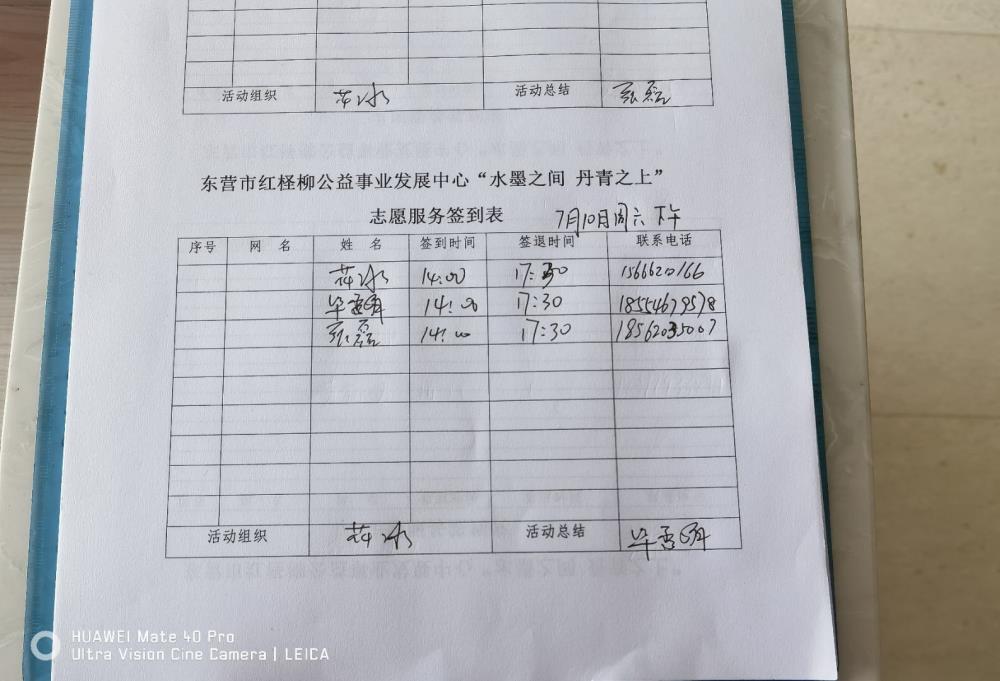 活动组织 苏冰 活动总结 张磊
东营市红柽柳公益事业发展中心“水墨之间 丹青之上”
志愿服务签到表 7月10日周六下午
序号 网 名 姓 名 签到时间 签退时间 联系电话
苏冰 14:00 17:30
14:00 17:30 18554679578
张磊 14:00 17:30 18562035007
活动组织 苏冰 活动总结
HUAWEI Mate 40 Pro
Ultra Vision Cine Camera | LEICA